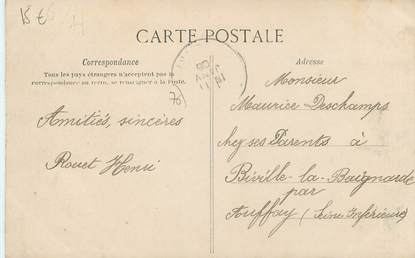 15 €
CARTE POSTALE
Correspondance
Tous les pays étrangers n'acceptent pas la
correspondance au verso, se renseigner à la Poste.
Adresse
70
Amitiés, sincères
Rouet Henri
Monsieur
Maurice Deschamps
chez ses Parents à
Biville-la-Baignarde
par
Auffay (Seine Inférieure)